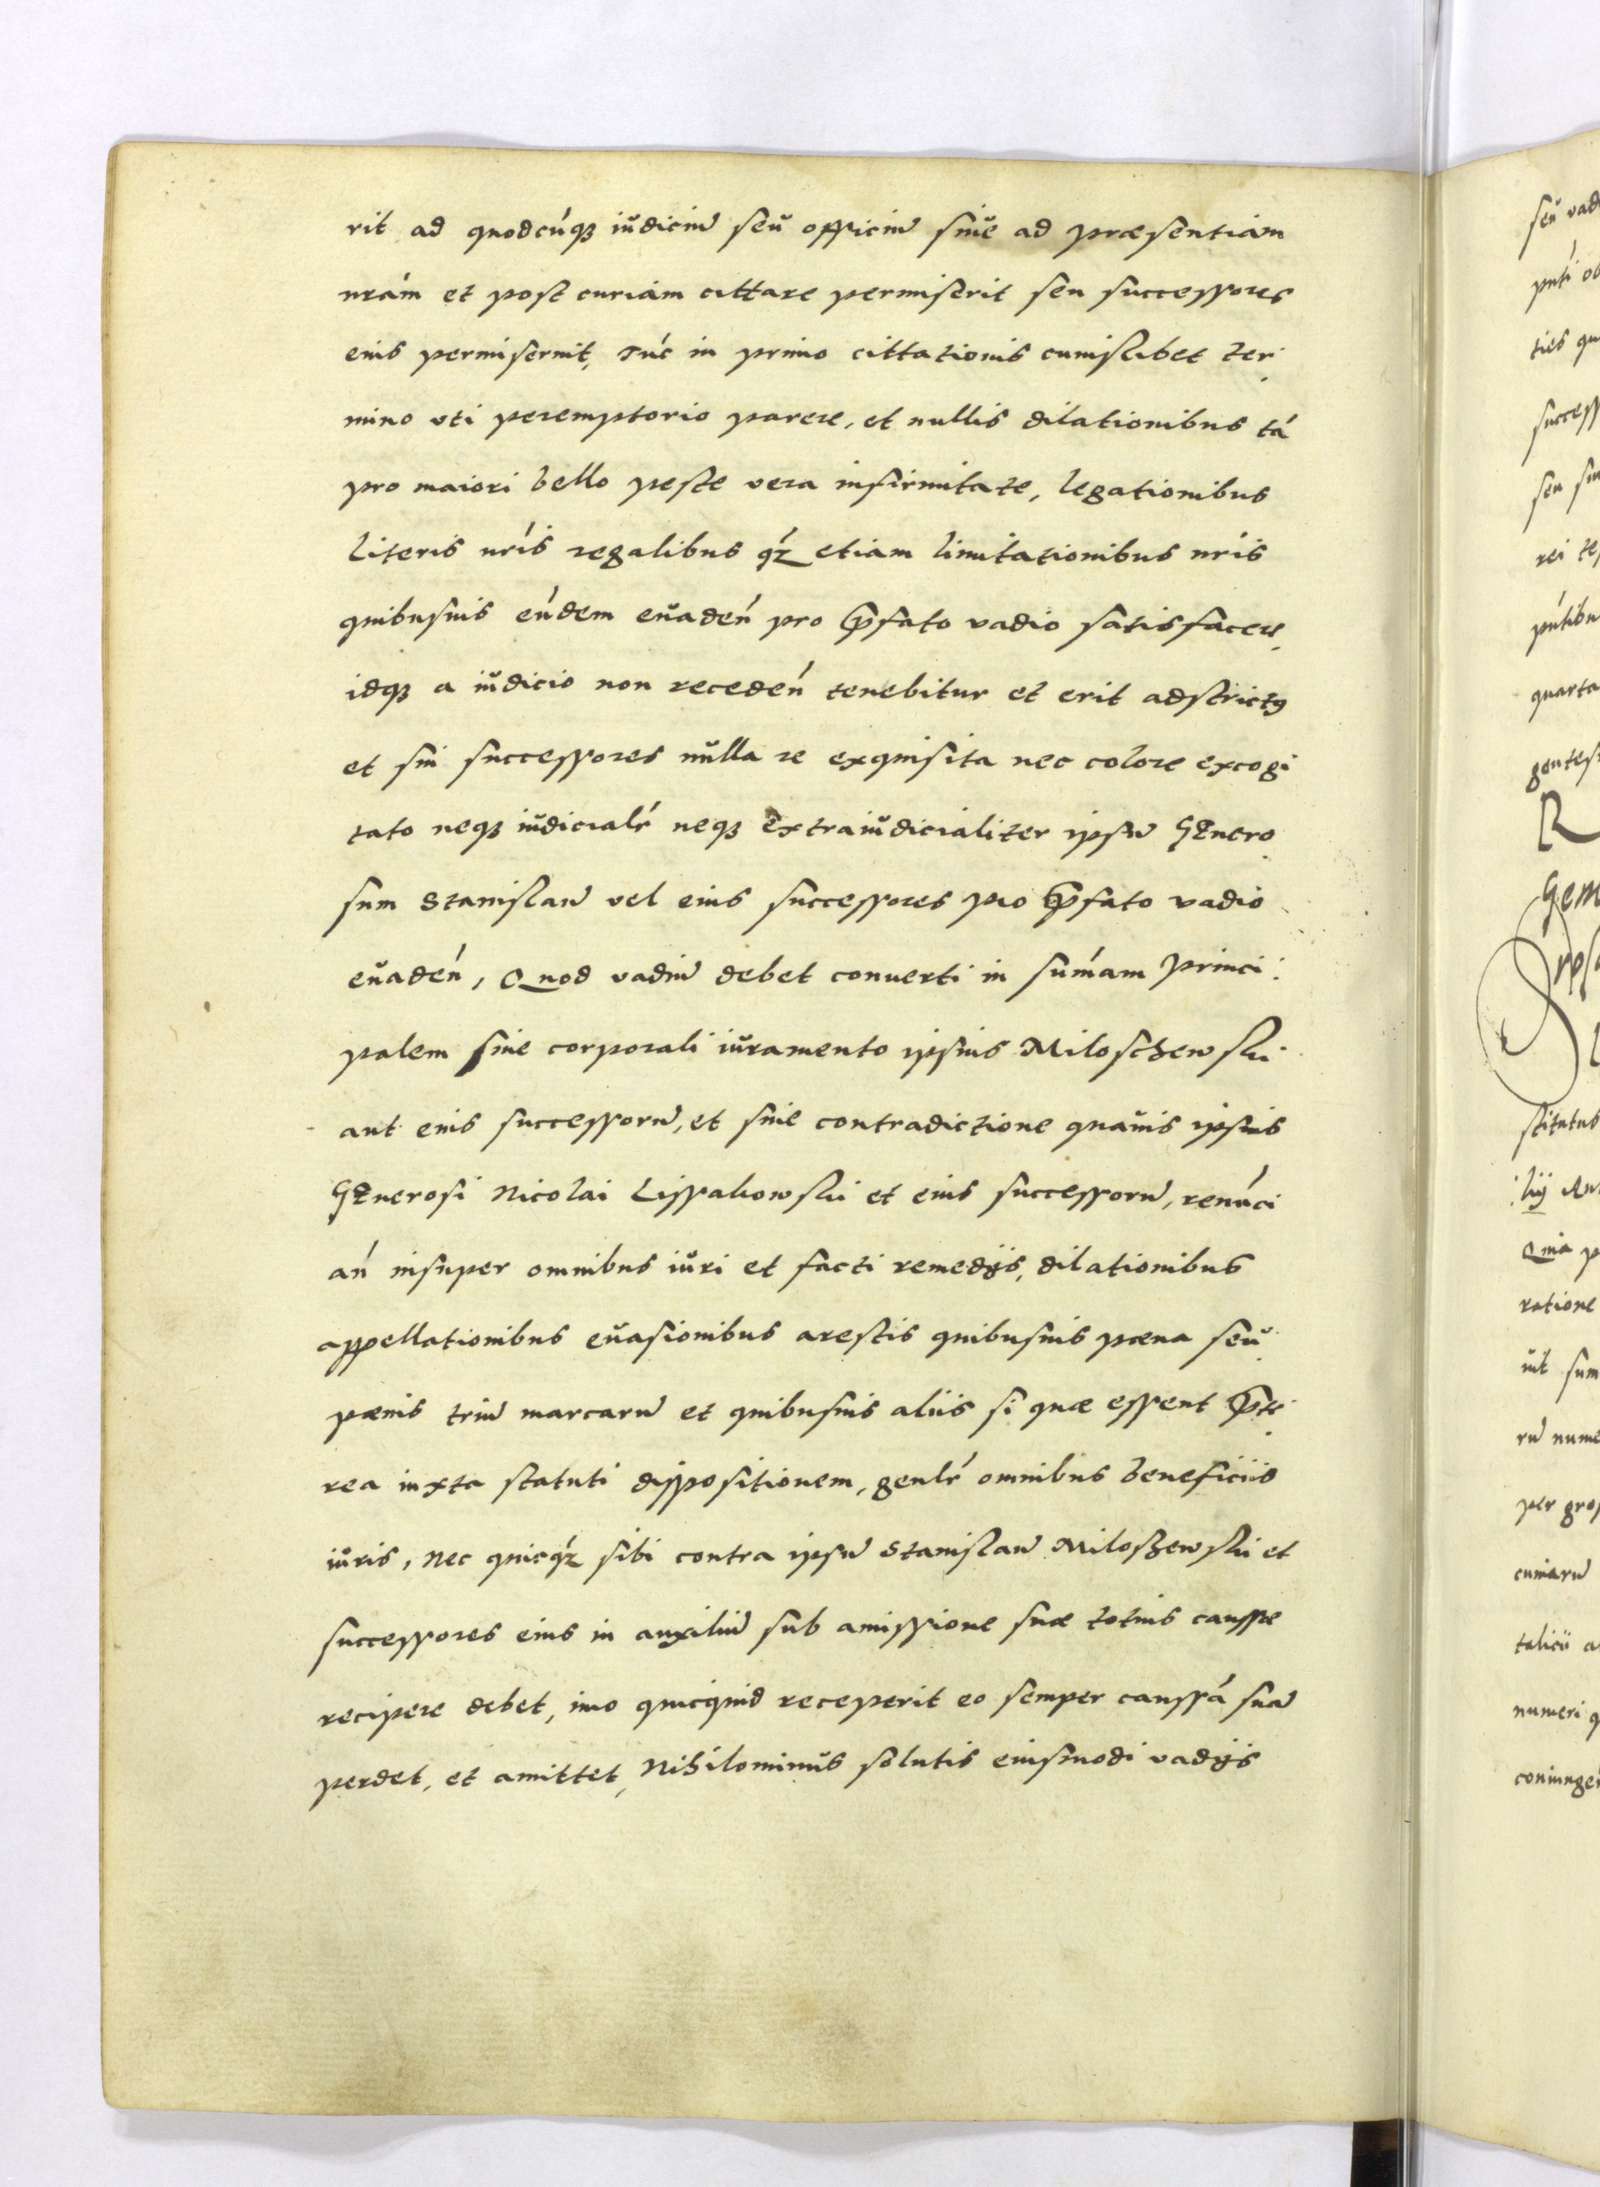 rit ad quodcúq₃ iŭdiciū seŭ officiū siŭe ad præsentiam
nrám et post curiam cittare permiserit seu successores
eius permiserint, Túc in primo cittationis cuiuslibet ter
mino uti peremptorio parere, et nullis dilationibus tá
pro maiori bello peste vera infirmitate, legationibus
literis nrís regalibus qź etiam limitationibus nrís
quibusuis eúdem eŭadeń pro p̄fato vadio satisfacere,
idq₃ a iŭdicio non recedeń tenebitur et erit adstrictꝯ
et sui successores nŭlla re exquisita nec colore excogi
tato neq₃ iŭdicialŕ neq₃ extraiŭdicialiter ipsū Genero
sum Stanislaū vel eius successores pro p̄fato vadio
eŭadeń, Quod vadiū debet conuerti in suḿam princi
palem sine corporali iŭramento ipsius Miloschewski
aut eius successorū, et sine contradictione quauis ipsius
Generosi Nicolai Lissakowski et eius successorū, renúci
ań insuper omnibus iŭri et facti remedijs, dilationibus
appellationibus eŭasionibus arestis quibusuis pœna seŭ
pœnis triū marcarū et quibusuis aliis si quæ essent p̄te
rea iuxta statuti dispositionem, genlŕ omnibus beneficiis
iŭris, nec quicqź sibi contra ipsū Stanislaū Miloszewski et
successores eius in auxiliū sub amissione suæ totius caussæ
recipere debet, imo quicquid receperit eo semper caussá suā
perdet, et amittet, Nihilominŭs solutis eiusmodi vadijs